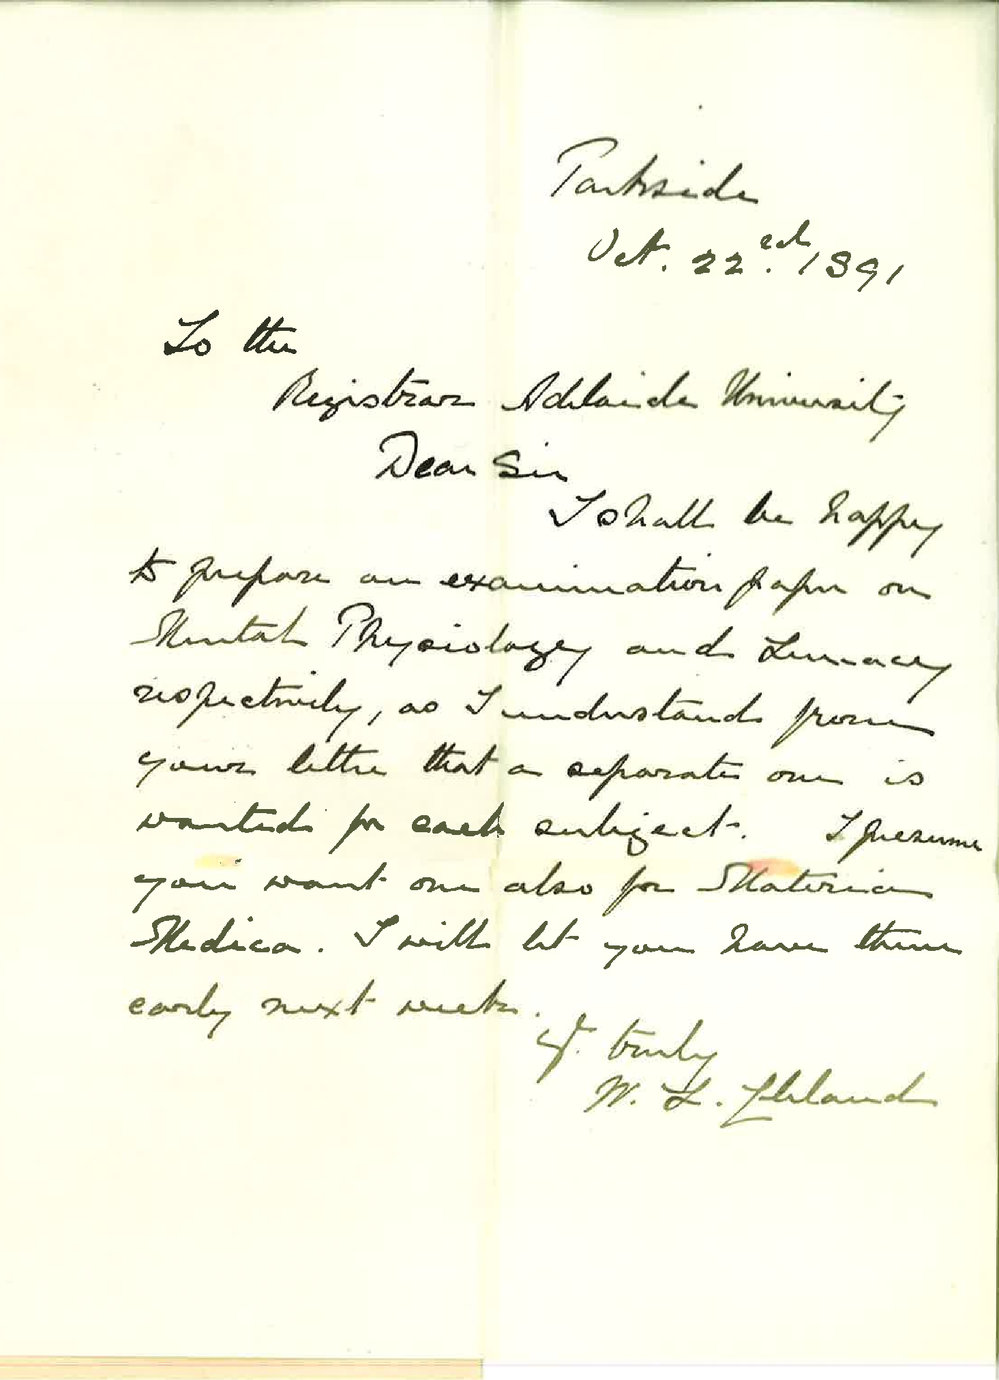 Parkside
Oct. 22nd. 1891
To the
Registrar Adelaide University
Dear Sir
I shall be happy
to prepare an examination paper on
Mental Physiology and Lunacy
respectively, as I understand from
your letter that a separate one is
wanted for each subject. I presume
you want one also for Materia
Medica. I will let you have them
early next week.
Yr. truly
W. L. Cleland